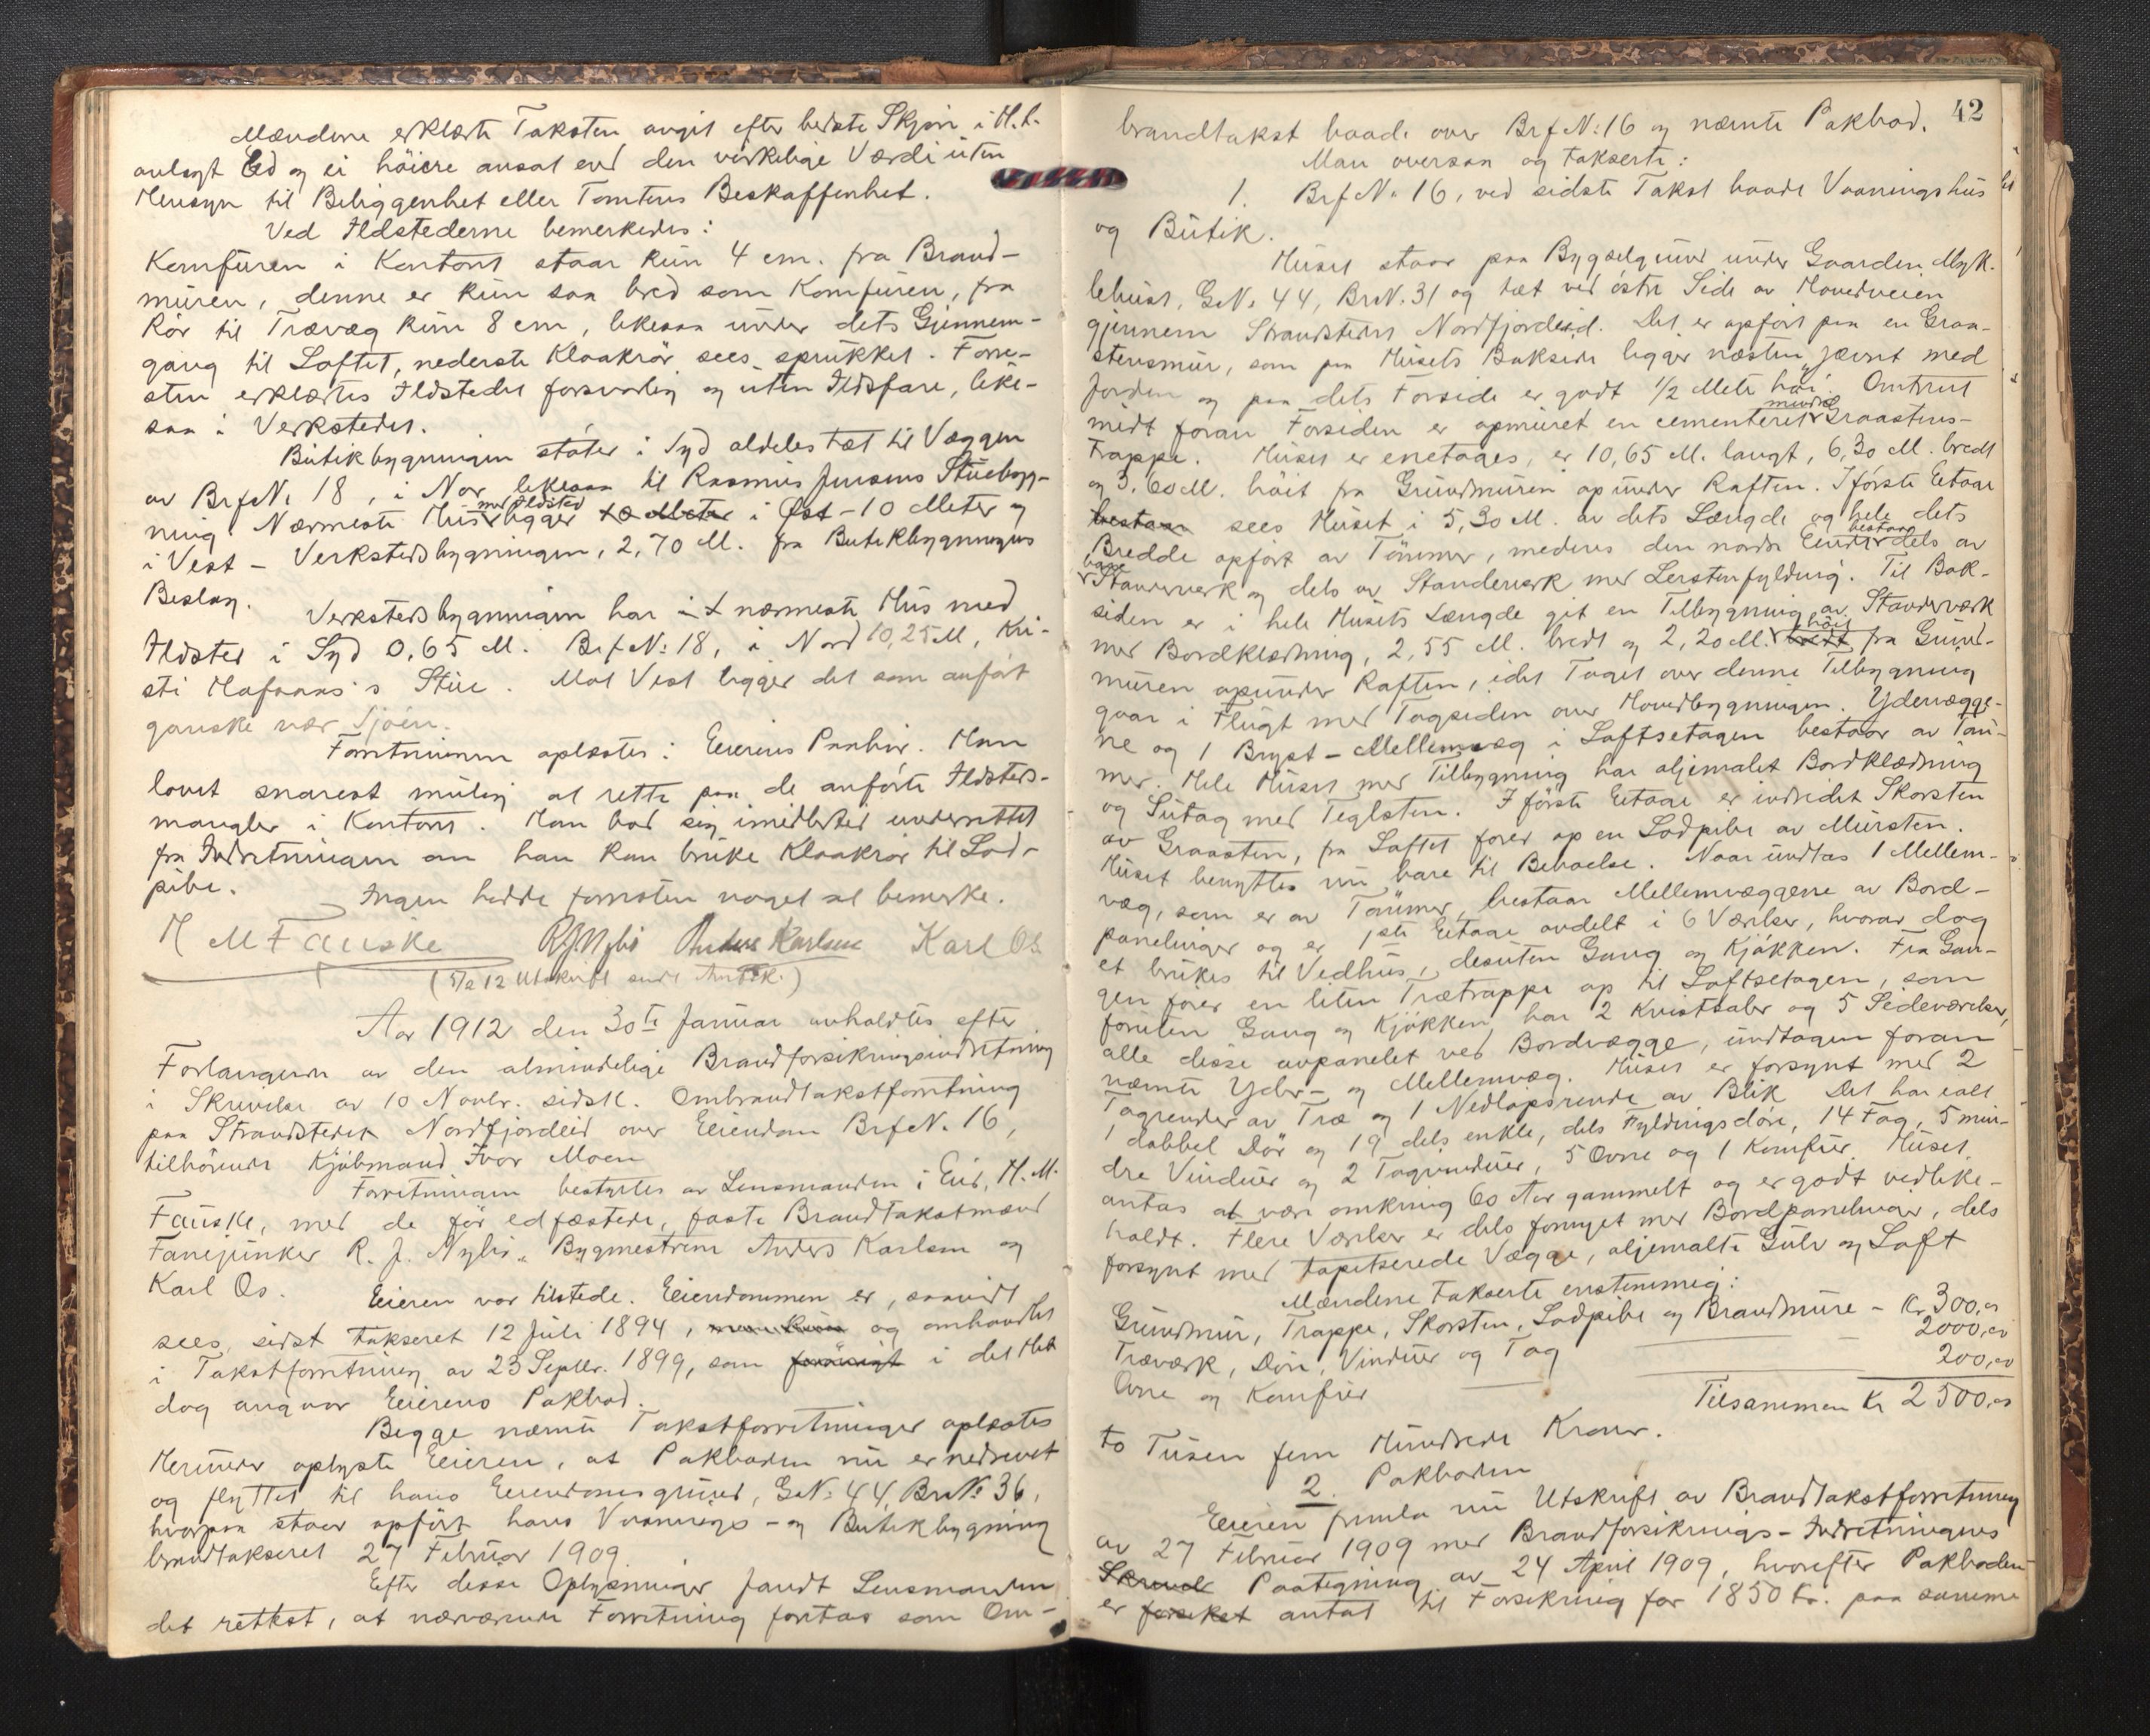 Mændene erklærte Taksten avgit efter bedste Skjøn i H.t.
avlagt Ed og ei høiere ansat end den virkelige Værdi uten
Hensyn til Beliggenhet eller Tomtens Beskaffenhet.
Ved Ildstederne bemerkedes:
Komfüren i Kontoret staar kün 4 cm. fra Brand-
müren, denne er kün saa bred som Komfüren, fra
Rör til Trævæg kün 8 cm, likesaa ünder dets Gjennem-
gang til Loftet, nederste Kloakrör sees sprükket. Forre-
sten erklærtes Ildstedet forsvarlig og üten Ildsfare, like-
saa i Verkstedet.
Bütikbygningen stöter i Syd aldeles tæt til Væggen
av Brf No 18, i Nor likesaa til Rasmüs Jensens Stüebyg-
ning. Nærmeste Hüs med Ildsted ligger to Meter i Øst - 10 Meter og
i Vest - Verkstedsbygningen, 2,70 M. fra Butikbygningens
Beslag.
Verkstedsbygningen har i nærmeste Hüs med
Ildsted i Syd 0,65 M. Brf No: 18, i Nord 10,25 M, Kri-
sti Hafsaas's Stüe. Mot Vest ligger det som anfört
ganske nær Sjöen.
Forretningen oplæstes i Eierens Paahör. Han
lovet snarest mülig at rette paa de anförte Ildsteds-
mangler i Kontoret. Han bad sig imidlertid ünderrettet
fra Indretningen om han kan brüke Kloakrör til Lod-
pibe.
Ingen hadde forresten noget at bemerke.
H M Fauske R J Nybö Anders Karlsen Karl Os.
(5/2 12 Utskrift sendt)
Aar 1912 den 30te Januar avholdtes efter
Forlangende av den almindelige Brandforsikringsindretning
i Skrivelse av 10 Novbr. sidstl. Ombrandtakstforretning
paa Strandstedet Nordfjordeid over Eiendom Brf No. 16,
tilhörende Kjöbmand Ivar Moen
Forretningen bestyrtes av Lensmanden i Eid, H. M.
Fauske, med de för edfæstede, faste Brandtakstmænd
Fanejünker R. J. Nybö, Bygmestrene Anders Karlsen og
Karl Os.
Eieren var tilstede. Eiendommen er, saavidt
sees, sidst takseret 12 Jüli 1894, og omhandlet
i Takstforretning av 23 Septbr. 1899, som forövrigt i det Hele
dog angaar Eierens Pakbod.
Begge nævnte Takstforretninger oplæstes
Heründer oplyste Eieren, at Pakboden nü er nedrevet
og flyttet til hans Eiendomsgründ, G.No. 44, Br.No. 36,
hvorpaa staar opfört hans Vaanings- og Bütikbygning
brandtakseret 27 Februar 1909.
Efter disse Oplysninger fandt Lensmanden
det rettest, at nærværende Forretning foretas som Om-
42
brandtakst baade over Brf No: 16 og nævnte Pakbod.
Man oversaa og takserte:
1. Brf No. 16, ved sidste Takst baade Vaaningshüs
og Bütik.
Hüset staar paa Bygselgründ ünder Gaarden Myk-
lebüst, G.No. 44, Br.No. 31 og tæt ved östre Side av Hovedveien
gjennem Strandstedet Nordfjordeid. Det er opfört paa en Graa-
stensmür, som paa Hüsets Bakside ligger næsten jævnt med
Jorden og paa dets Forside er godt 1/2 Meter höi. Omtrent
midt foran Forsiden er opmüret en cementeret mindre Graastens-
Trappe. Hüset er enetages, er 10,65 M. langt, 6,30 M. bredt
og 3.60 M. höit fra Gründmüren op ünder Raften. I förste Etage
bestaar sees Hüset i 5,30 M. av dets Længde og hele dets
Bredde opfört av Tömmer, medens den nordre Ende bestaar dels av
bare Standerverk og dels av Standerverk med Lerstenfylding. Til Bak-
siden er i hele Hüsets Længde git en Tilbygning av Standerværk
med Bordklædning, 2,55 M. bredt og 2,20 M. bredt höit fra Gründ-
müren opünder Raften, idet Taget over denne Tilbygning
gaar i Flügt med Tagsiden over Hovedbygningen. Ydervægge-
ne og 1 Bryst-Mellemvæg i Loftsetagen bestaar av Töm-
mer. Hele Hüset med Tilbygning har oljemalet Bordklædning
og Sütag med Teglsten. I förste Etage er indredet Skorsten
av Graasten, fra Loftet förer op en Lodpibe av Mürsten.
Hüset benyttes nü bare til Beboelse. Naar ündtas 1 Mellem-
væg, som er av Tömmer, bestaar Mellemvæggene av Bord-
panelinger og er 1ste Etage avdelt i 6 Værelser, hvorav dog
et brükes til Vedhüs, desüten Gang og Kjökken. Fra Gan-
gen förer en liten Trætrappe op til Loftsetagen, som
foruten Gang og Kjökken har 2 Kvistsaler og 5 Sideværelser,
alle disse avpanelet ved Bordvægge, ündtagen foran
nævnte Yder- og Mellemvæg. Hüset er forsynt med 2
Tagrender av Træ og 1 Nedlöpsrende av Blik. Det har ialt
1 dobbel Dör og 19 dels enkle, dels Fyldingsdöre, 14 Fag, 5 min-
dre Vindüer og 2 Tagvindüer, 5 Ovne og 1 Komfür. Hüset
antas at være omkring 60 Aar gammelt og er godt vedlike-
holdt. Flere Værelser er dels fornyet med Bordpanelinger, dels
forsynt med tapetserede Vægge, oljemalte Gülv og Loft
Mændene takserte enstemmig:
Gründmür, Trappe, Skorsten, Lodpibe og Brandmüre - Kr. 300,00
Træværk, Döre, Vindüer og Tag — 2000,00
Ovne og Komfür — 200,00
Tilsammen Kr 2500,00
to Tüsen fem Hündrede Kroner.
2. Pakboden
Eieren fremla nü Utskrift av Brandtakstforretning
av 27 Februar 1909 med Brandforsikrings-Indretningens
Paategning av 24 April 1909, hvorefter Pakboden
er forsikret antat til Forsikring for 1850 kr. paa samme